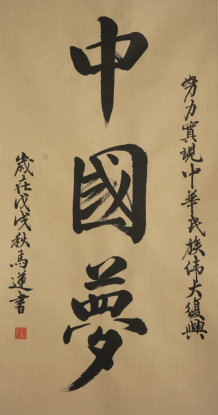 努力實現中華民族偉大復興
中國夢
歲在戊戌秋馬蓮書